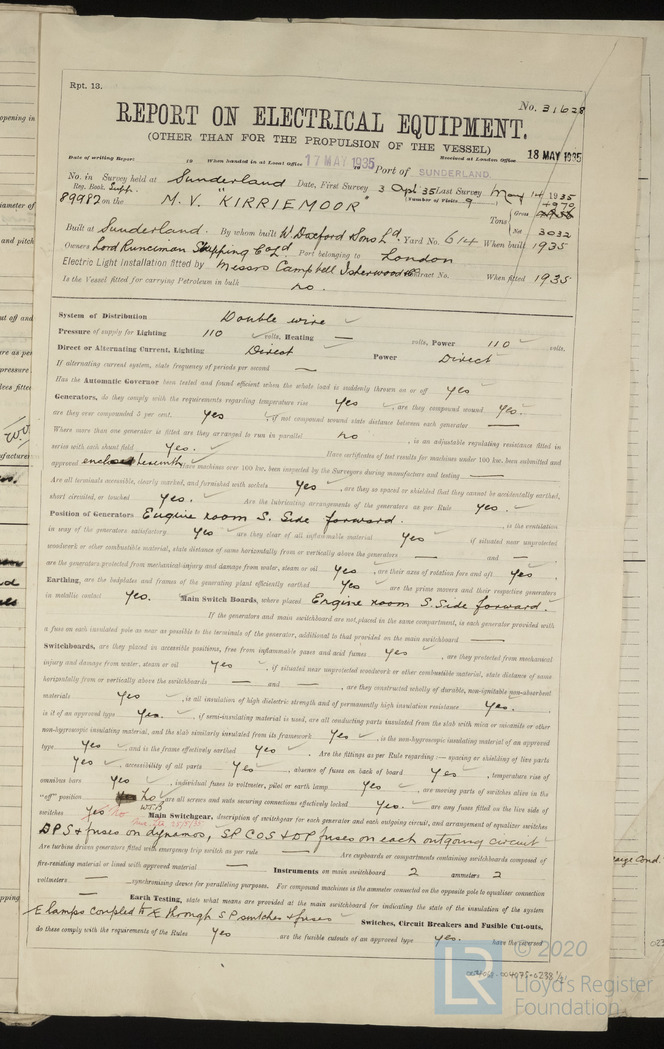 Rpt. 13.
No. 31628
REPORT ON ELECTRICAL EQUIPMENT.
(OTHER THAN FOR THE PROPULSION OF THE VESSEL)
18 MAY 1935
Date of writing Report 19 When handed in at Local Office 17 MAY 1935 Port of SUNDERLAND. Received at London Office
No. in Survey held at Sunderland Date, First Survey 3 Apl 35 Last Survey May 14 1935
Reg. Book. Supp. (Number of Visits 9)
89982 on the M. V. "KIRRIEMOOR" Tons Gross 4970
Net 3032
Built at Sunderland. By whom built W. Doxford & Sons Ld. Yard No. 614 When built 1935
Owners Lord Runciman Shipping Co Ld Port belonging to London
Electric Light Installation fitted by Messrs Campbell Isherwood & Co Contract No. When fitted 1935
Is the Vessel fitted for carrying Petroleum in bulk no.
System of Distribution Double wire
Pressure of supply for Lighting 110 volts, Heating — volts, Power 110 volts.
Direct or Alternating Current, Lighting Direct Power Direct
If alternating current system, state frequency of periods per second —
Has the Automatic Governor been tested and found efficient when the whole load is suddenly thrown on or off yes
Generators, do they comply with the requirements regarding temperature rise yes, are they compound wound yes.
are they over compounded 5 per cent. yes, if not compound wound state distance between each generator —
Where more than one generator is fitted are they arranged to run in parallel no, is an adjustable regulating resistance fitted in
series with each shunt field yes. Have certificates of test results for machines under 100 kw. been submitted and
approved enclosed herewith Have machines over 100 kw. been inspected by the Surveyors during manufacture and testing —
Are all terminals accessible, clearly marked, and furnished with sockets yes, are they so spaced or shielded that they cannot be accidentally earthed,
short circuited, or touched yes. Are the lubricating arrangements of the generators as per Rule yes.
Position of Generators Engine room S. Side forward., is the ventilation
in way of the generators satisfactory yes are they clear of all inflammable material yes if situated near unprotected
woodwork or other combustible material, state distance of same horizontally from or vertically above the generators — and —
are the generators protected from mechanical injury and damage from water, steam or oil yes, are their axes of rotation fore and aft yes.
Earthing, are the bedplates and frames of the generating plant efficiently earthed yes are the prime movers and their respective generators
in metallic contact yes. Main Switch Boards, where placed Engine room S. Side forward.
If the generators and main switchboard are not placed in the same compartment, is each generator provided with
a fuse on each insulated pole as near as possible to the terminals of the generator, additional to that provided on the main switchboard —
Switchboards, are they placed in accessible positions, free from inflammable gases and acid fumes yes, are they protected from mechanical
injury and damage from water, steam or oil yes, if situated near unprotected woodwork or other combustible material, state distance of same
horizontally from or vertically above the switchboards — and —, are they constructed wholly of durable, non-ignitable non-absorbent
materials yes, is all insulation of high dielectric strength and of permanently high insulation resistance yes.
is it of an approved type yes., if semi-insulating material is used, are all conducting parts insulated from the slab with mica or micanite or other
non-hygroscopic insulating material, and the slab similarly insulated from its framework yes, is the non-hygroscopic insulating material of an approved
type yes, and is the frame effectively earthed yes. Are the fittings as per Rule regarding:— spacing or shielding of live parts
yes, accessibility of all parts yes, absence of fuses on back of board yes, temperature rise of
omnibus bars yes, individual fuses to voltmeter, pilot or earth lamp yes, are moving parts of switches alive in the
"off" position no are all screws and nuts securing connections effectively locked yes. are any fuses fitted on the live side of
switches yes no Main Switchgear, description of switchgear for each generator and each outgoing circuit, and arrangement of equalizer switches
D.P.S & fuses on dynamos, S.P.C.O.S & D.P fuses on each outgoing circuit
Are turbine driven generators fitted with emergency trip switch as per rule — Are cupboards or compartments containing switchboards composed of
fire-resisting material or lined with approved material — Instruments on main switchboard 2 ammeters 2
voltmeters — synchronising device for paralleling purposes. For compound machines is the ammeter connected on the opposite pole to equaliser connection
— Earth Testing, state what means are provided at the main switchboard for indicating the state of the insulation of the system
E lamps coupled to E through S P switches & fuses Switches, Circuit Breakers and Fusible Cut-outs,
do these comply with the requirements of the Rules yes are the fusible cutouts of an approved type yes. have the reversed
© 2020
LR Lloyd's Register
Foundation